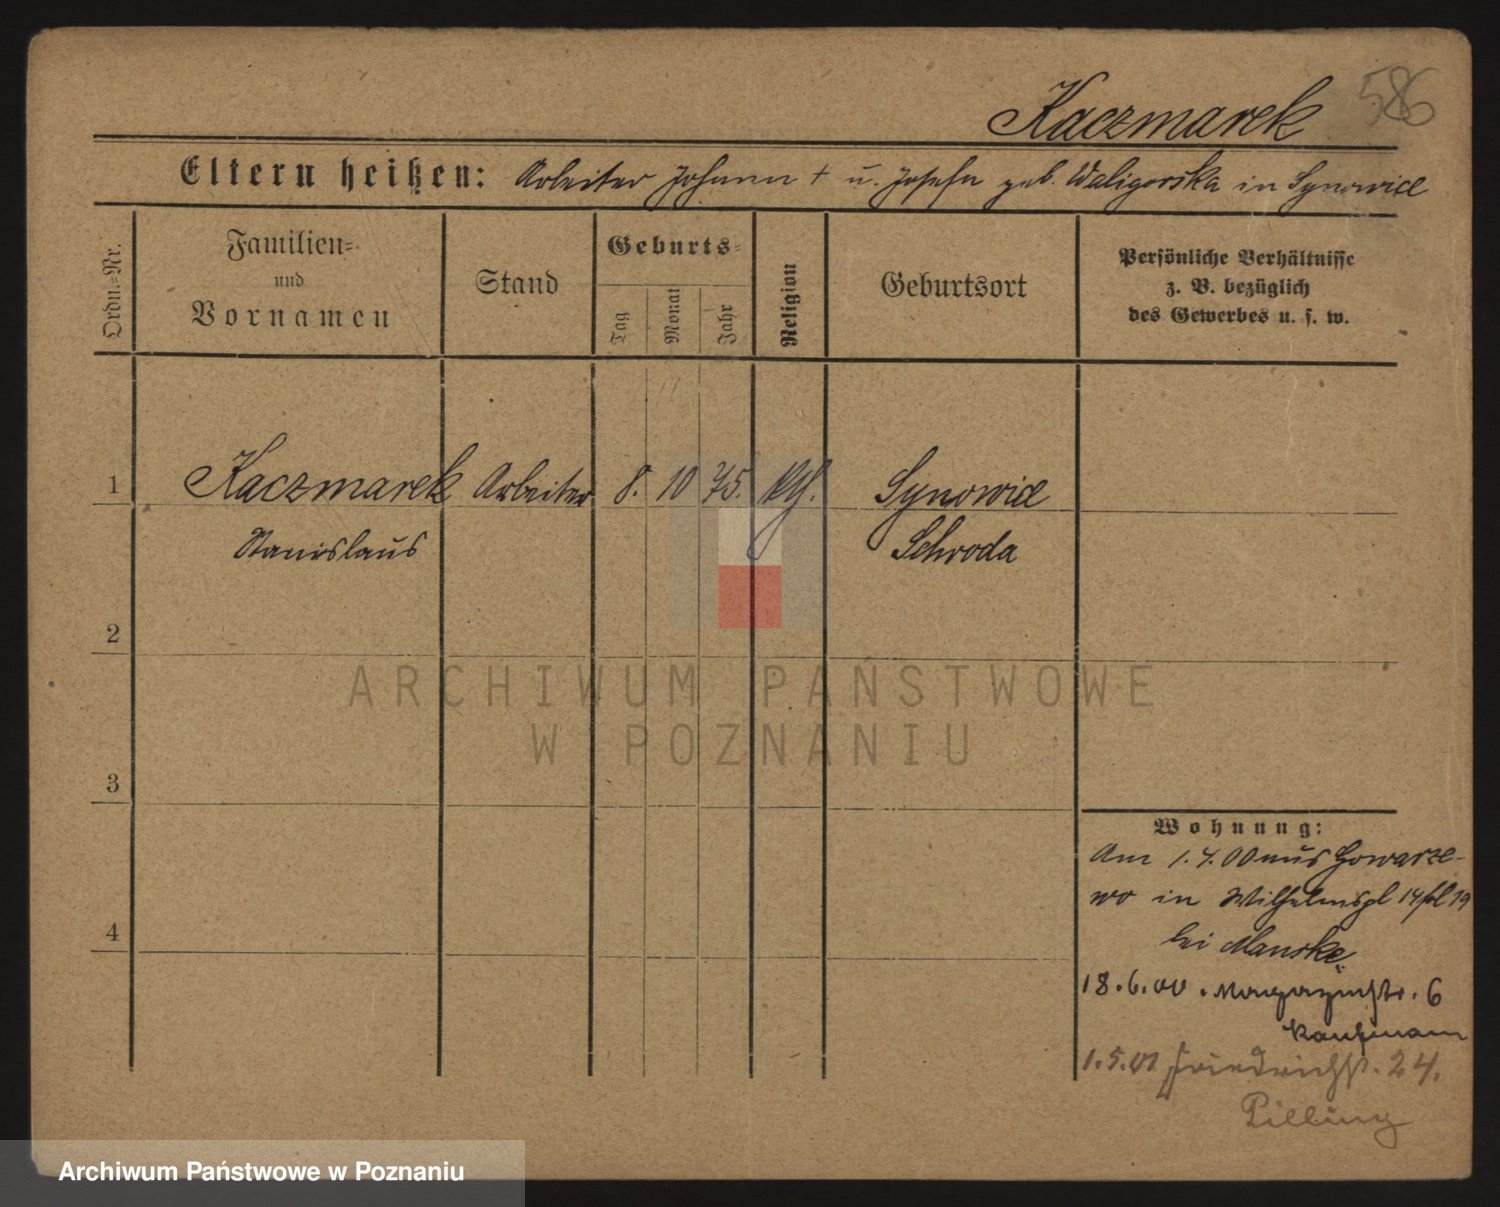 Kaczmarek 586
Eltern heißen: Arbeiter Johann + u. Josefa geb. Waligorska in Synowiec
Ordn.=Nr.
Familien=
und
Vornamen
Stand
Geburts=
Tag
Monat
Jahr
Religion
Geburtsort
Persönliche Verhältnisse
z. B. bezüglich
des Gewerbes u. s. w.
1 Kaczmarek Arbeiter 8. 10 75. kth. Synowiec
Stanislaus Schroda
2
3
4
Wohnung:
Am 1.4.00 aus Gowarze-
wo in Wilhelmspl 14/
bei Manske
18.6.00. Magazinstr. 6
Kaufmann
1.5.01 Friedrichst. 24.
Pilling
ARCHIWUM PAŃSTWOWE
W POZNANIU
Archiwum Państwowe w Poznaniu